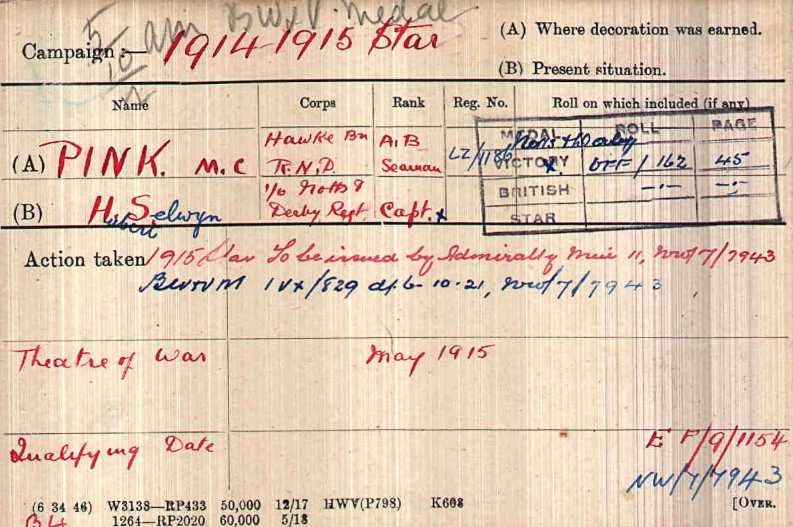 5/15 am BW & V. Medal
Campaign :— 1914-1915 Star
(A) Where decoration was earned.
(B) Present situation.
Name Corps Rank Reg. No. Roll on which included (if any)
MEDAL ROLL PAGE
Hawke Bn A.B Notts & Derby
(A) PINK. M.C R.N.D. Seaman LZ/1186 VICTORY x. OFF/162 45
1/6 Notts & BRITISH —·— —·—
(B) H. Selwyn Derby Regt. Capt. x
Hubert STAR
Action taken 1915 Star To be issued by Admiralty 11, NW/7/7943
BW&VM IVX/829 d/6-10-21, NW/7/7943
Theatre of War May 1915
Qualifying Date
E F/9/1154
NW/7/7943
(6 34 46) W3138—RP433 50,000 12/17 HWV(P798) K608 [OVER.
B4 1264—RP2020 60,000 5/18